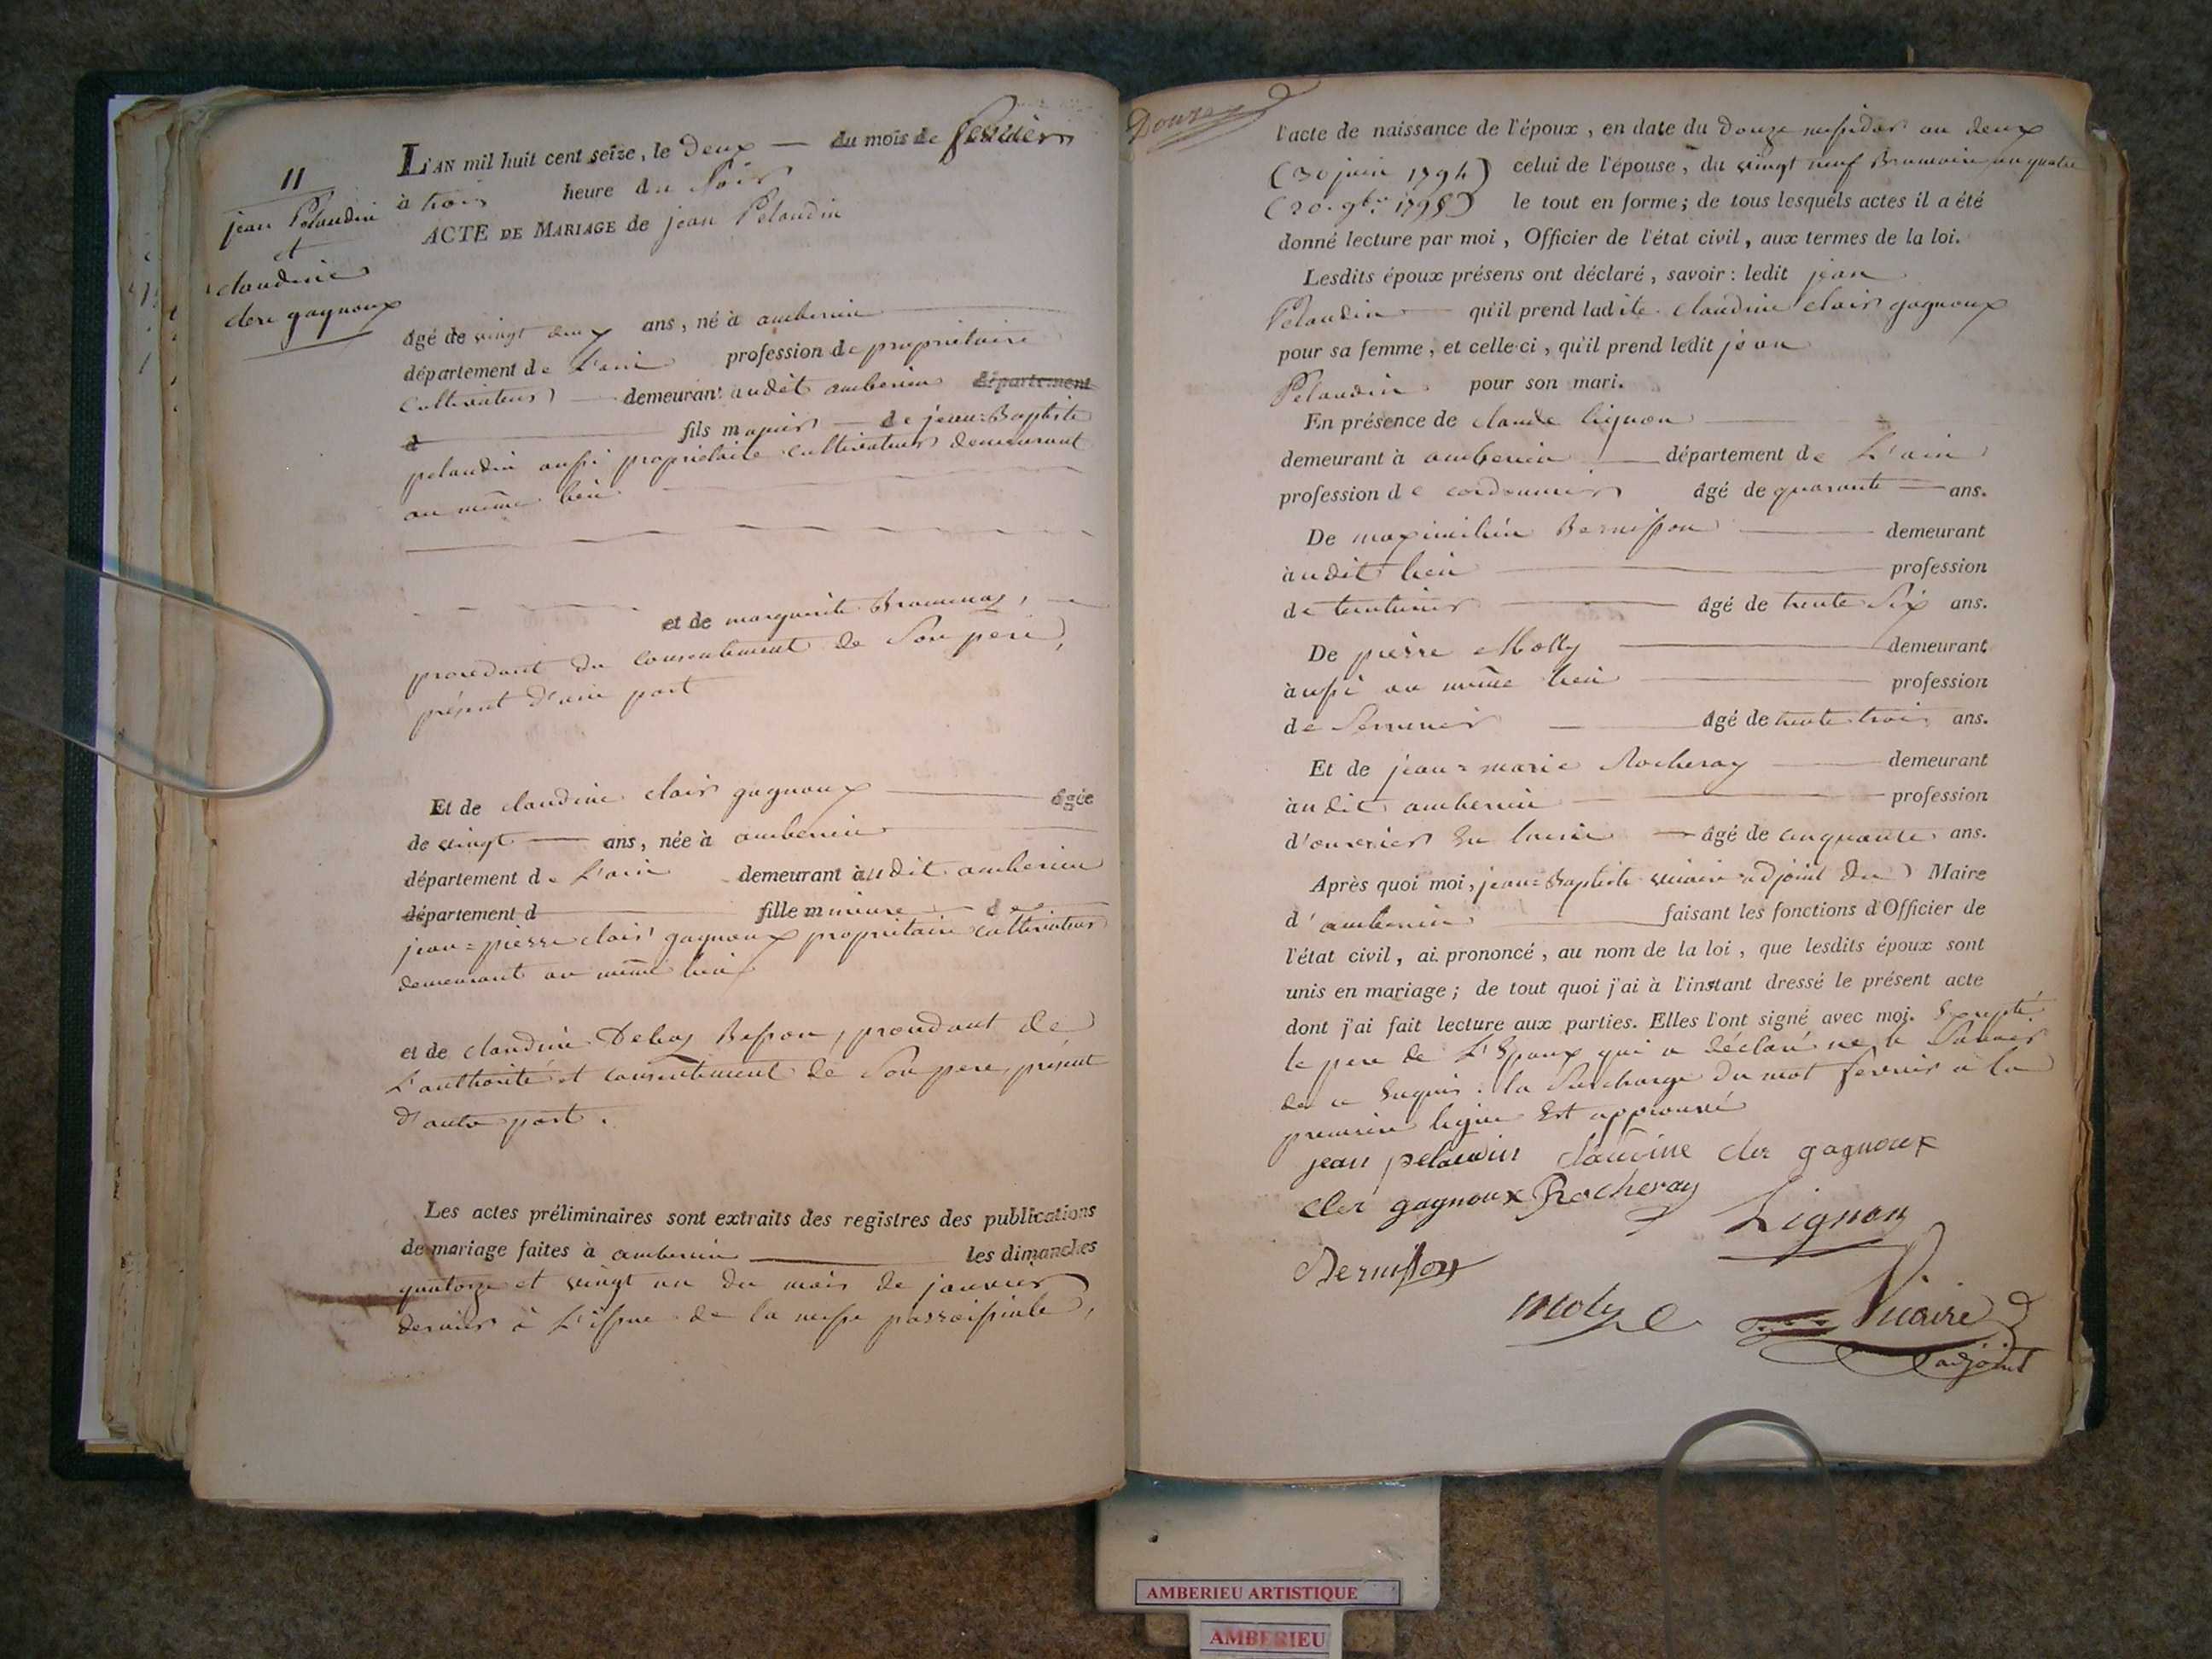 11
jean Pelaudin
et
claudine
clere gagnoux
L'AN mil huit cent seize, le Deux — du mois de fevrier
à trois heure du Soir
ACTE DE MARIAGE de jean Pelaudin
âgé de vingt deux ans, né à amberieu
département de L'ain profession de propriétaire
Cultivateur demeurant audit amberieu département
d fils majeur de jean=Baptiste
pelaudin aussi propriétaire cultivateur demeurant
au même lieu
et de marguerite
procedant du consentement de Son pere,
présent d'une part
Et de claudine clair gagnoux âgée
de vingt ans, née à amberieu
département de L'ain demeurant audit amberieu
département d fille mineure de
jean=pierre clair gagnoux propriétaire cultivateur
demeurant au même lieu
et de claudine Besson, procedant de
L'authorité et consentement de Son pere, présent
d'autre part.
Les actes préliminaires sont extraits des registres des publications
de mariage faites à amberieu les dimanches
quatorze et vingt un du mois de janvier
dernier à L'issue de la messe parroissiale,
Douze
l'acte de naissance de l'époux, en date du Douze messidor an deux
(30 juin 1794) celui de l'épouse, du vingt neuf Brumaire an quatre
(20. 9bre 1795) le tout en forme; de tous lesquels actes il a été
donné lecture par moi, Officier de l'état civil, aux termes de la loi.
Lesdits époux présens ont déclaré, savoir: ledit jean
Pelaudin qu'il prend ladite claudine clair gagnoux
pour sa femme, et celle-ci, qu'il prend ledit jean
Pelaudin pour son mari.
En présence de claude Lignon
demeurant à amberieu département de L'ain
profession de cordonnier âgé de quarante ans.
De maximilien Bernisson demeurant
audit lieu profession
de teinturier âgé de trente Six ans.
De pierre Molly demeurant
aussi au même lieu profession
de Serrurier âgé de trente trois ans.
Et de jean=marie Rocheray demeurant
audit amberieu profession
d'ouvrier en laine âgé de cinquante ans.
Après quoi moi, jean=Baptiste vicaire adjoint du Maire
d'amberieu faisant les fonctions d'Officier de
l'état civil, ai prononcé, au nom de la loi, que lesdits époux sont
unis en mariage; de tout quoi j'ai à l'instant dressé le présent acte
dont j'ai fait lecture aux parties. Elles l'ont signé avec moi. Excepté
le pere de L'Epoux qui a déclaré ne le Savoir
de ce Enquis. la Surcharge du mot fevrier à la
premiere ligne Est approuvé
jean pelaudin claudine cler gagnoux
cler gagnoux Rocheray
Lignon
Bernisson
moly
Vicaire
adjoint
AMBERIEU ARTISTIQUE
AMBERIEU